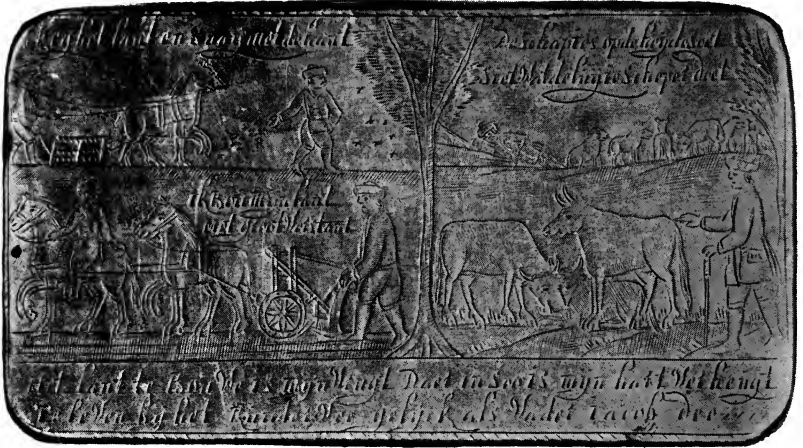 eg het lant en met de hant
De schapies op de heyde soet
Siet Wat de schepet doet
Ik bou myn lant
met groot Verstant
Het lant te Bou We is myn Daer in Soo is myn hart Verheugt
Te leven by het Vee gelyck als Vader Iacob dee